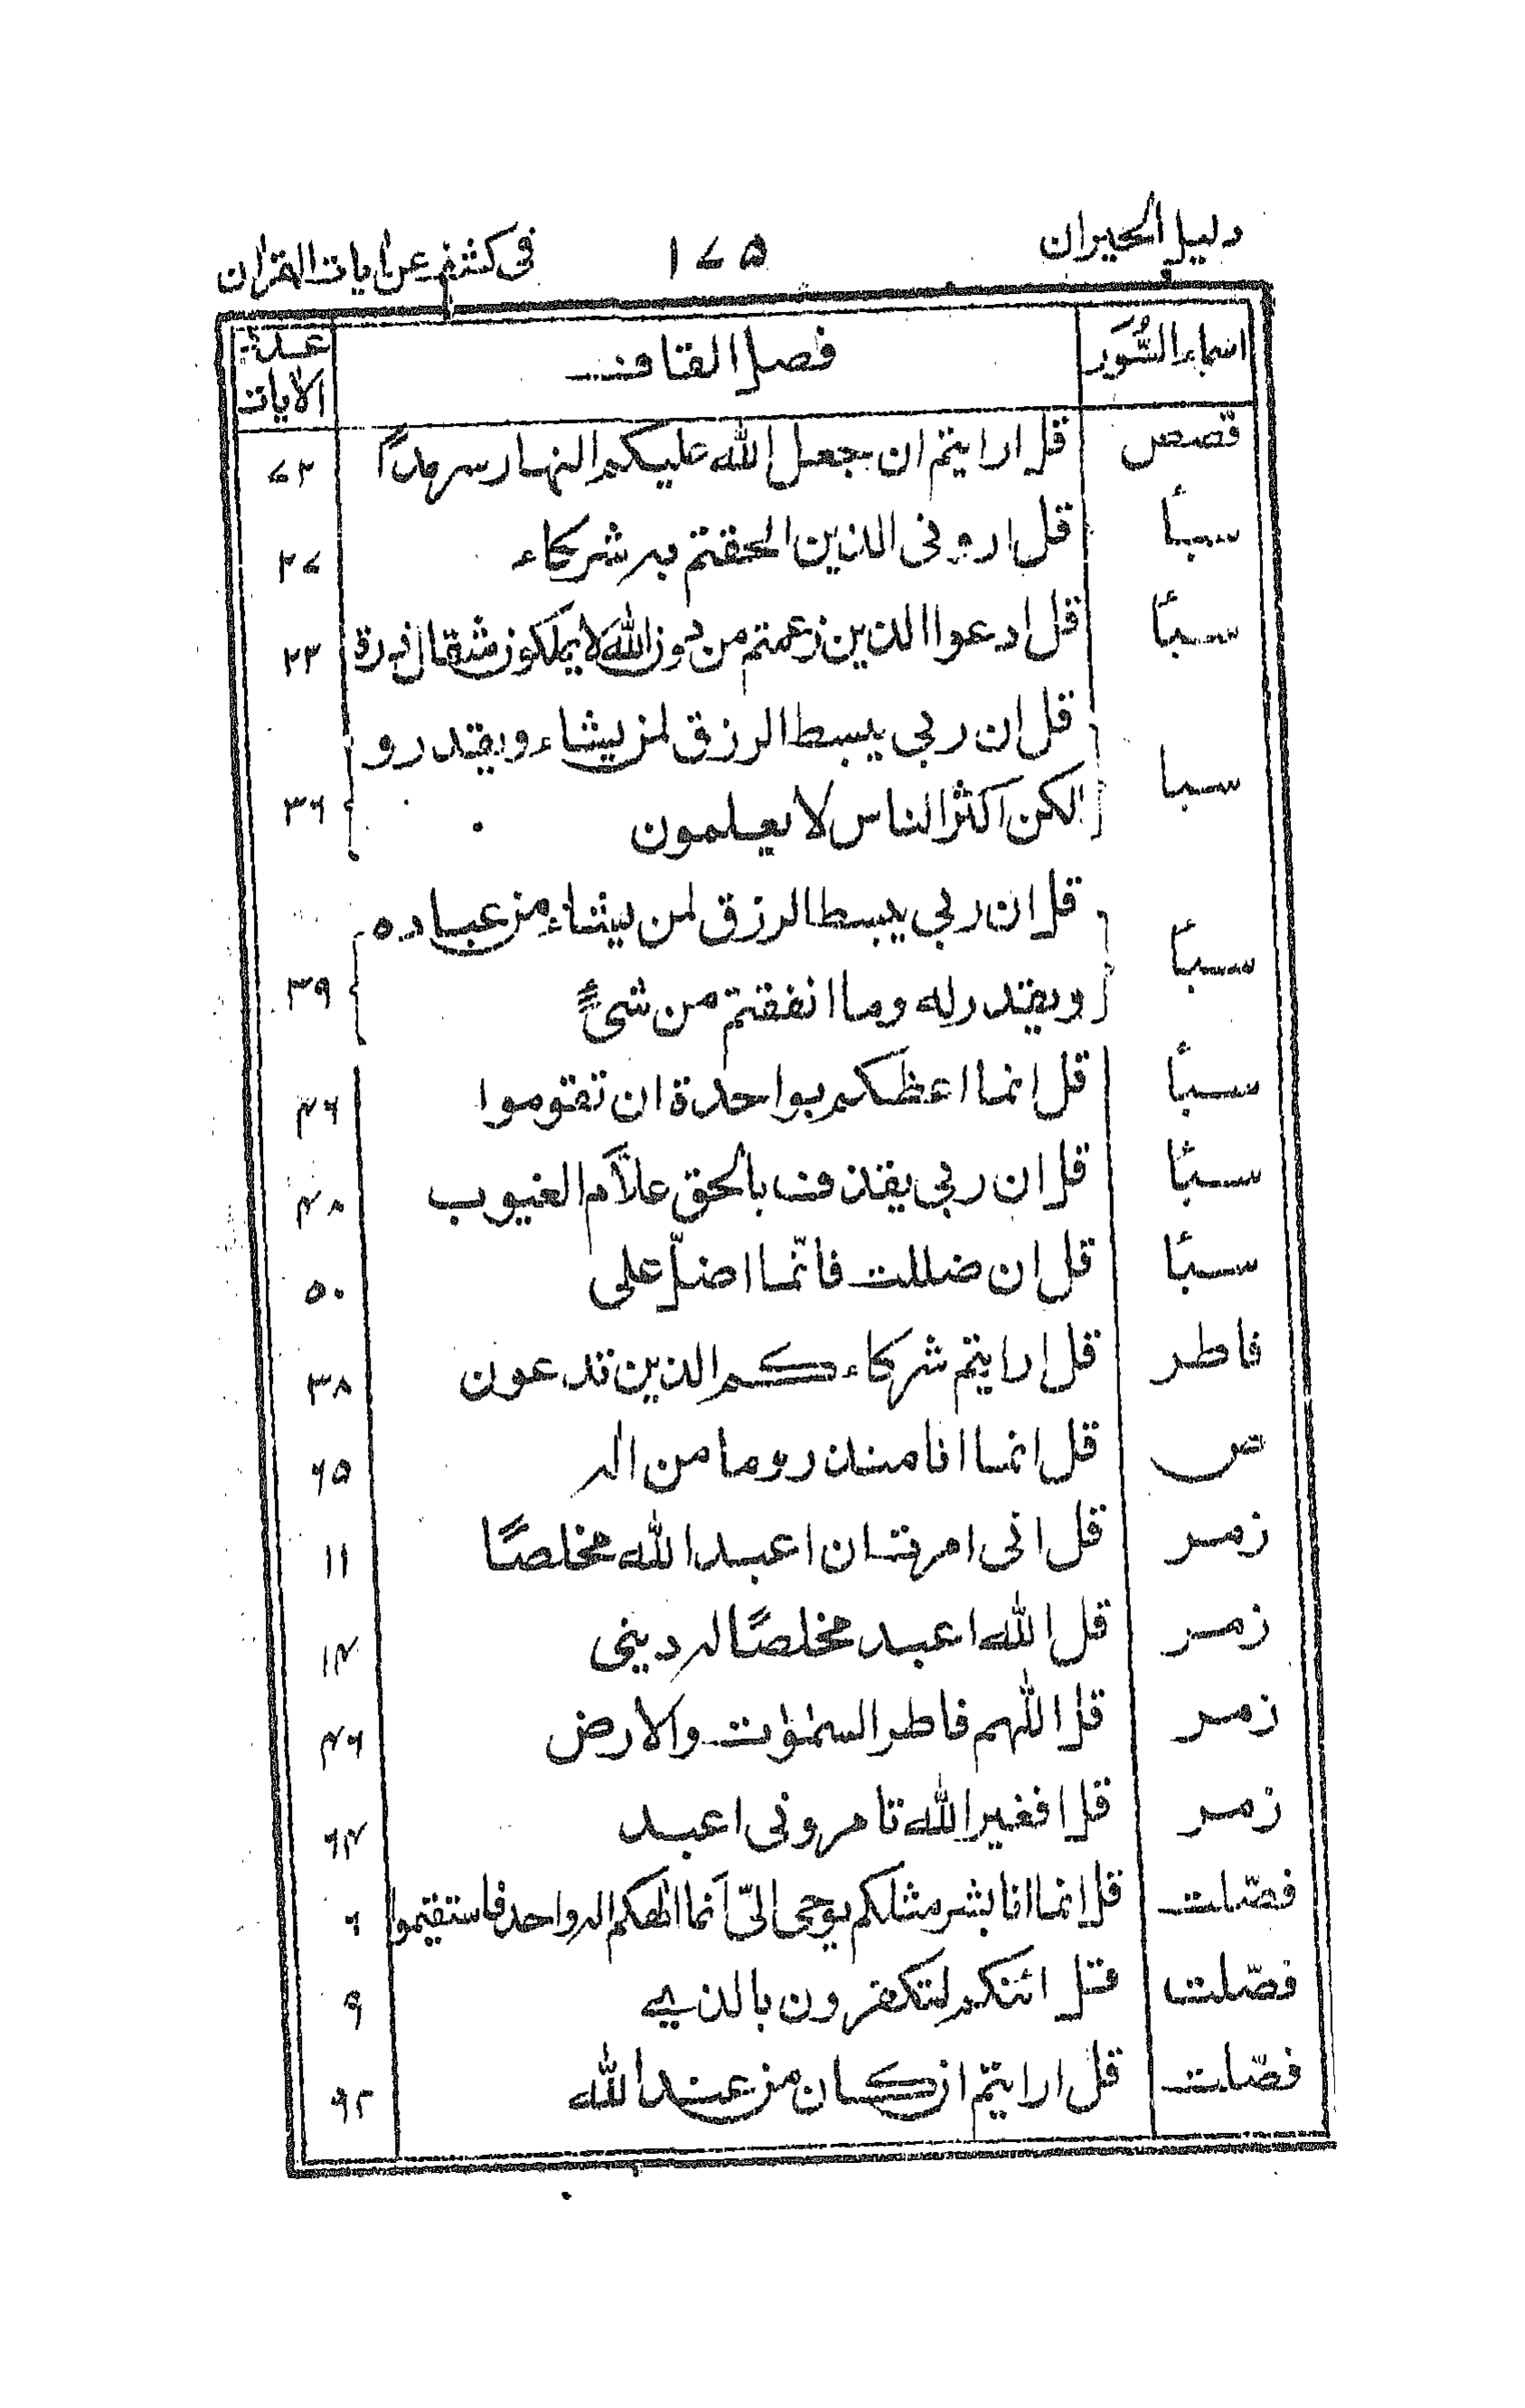 دليل الحيران ١٧٥ فى كشف عن ايات القران
اسماء السُّوَر فصل القاف عدة الايات
قصص قل ارايتم ان جعل الله عليكم النهار سرمداً ٧٢
سبأ قل ارونى الذين الحقتم به شركاء ٢٧
سبأ قل ادعوا الذين زعمتم من دون الله لا يملكون مثقال ذرة ٢٢
قل ان ربى يبسط الرزق لمن يشاء ويقدر و
سبا لكن اكثر الناس لا يعلمون ٣٦
قل ان ربى يبسط الرزق لمن يشاء من عباده
سبأ ويقدر له وما انفقتم من شىءٍ ٣٩
سبأ قل انما اعظكم بواحدة ان تقوموا ٤٦
سبأ قل ان ربى يقذف بالحق علاّم الغيوب ٤٨
سبأ قل ان ضللت فانّما اضلّ على ٥٠
فاطر قل ارايتم شركاءكم الذين تدعون ٣٨
ص قل انما انا منذر وما من اله ٦٥
زمر قل انى امرت ان اعبد الله مخلصًا ١١
زمر قل الله اعبد مخلصًا له دينى ١٤
زمر قل اللهم فاطر السمٰوٰت والارض ٤٦
زمر قل افغير الله تامرونى اعبد ٦٤
فصّلت قل انما انا بشر مثلكم يوحى الىّ انما الٰهكم اله واحد فاستقيموا ٦
فصّلت قل ائنكم لتكفرون بالذى ٩
فصّلت قل ارايتم ان كان من عند الله ٩٢